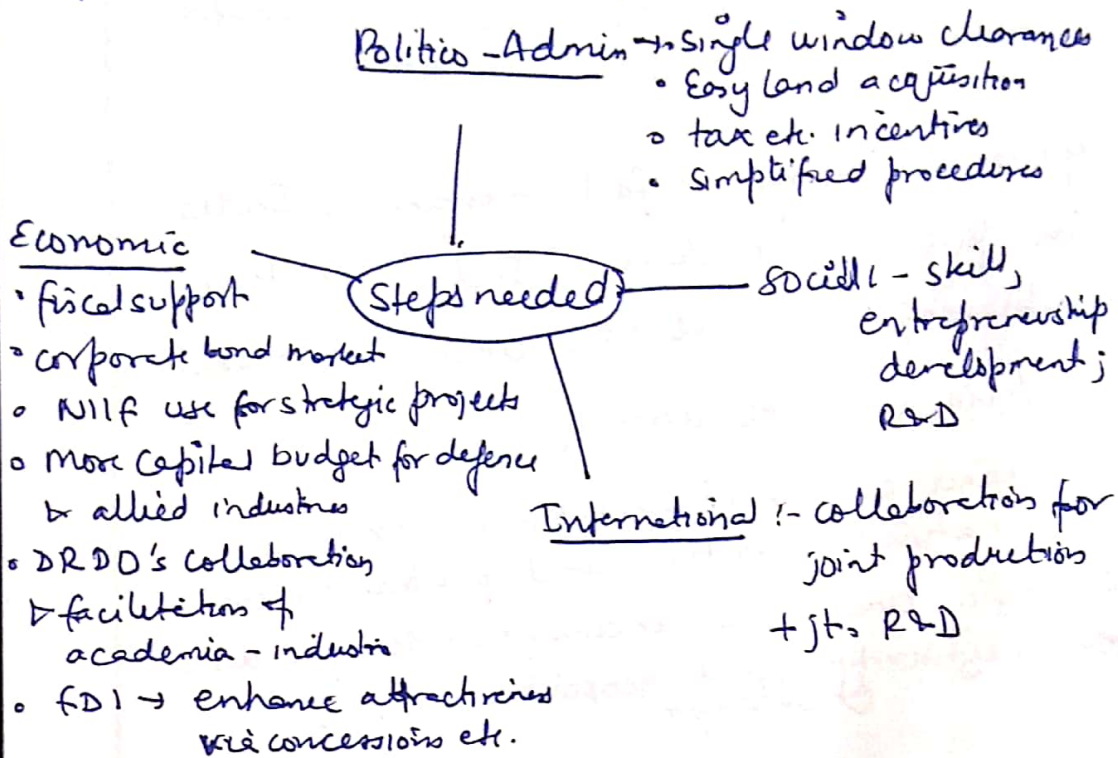 Politico-Admin → Single window clearances
• Easy land acquisition
• tax etc. incentives
• simplified procedures
Economic
• fiscal support
• corporate bond market
• NIIF use for strategic projects
• More capital budget for defence
& allied industries
• DRDO's collaboration
& facilitation of
academia - industri
• FDI → enhance attractiveness
via concessions etc.
Steps needed
Social - skill,
entrepreneurship
development;
R&D
International :- collaboration for
joint production
+ jt. R&D